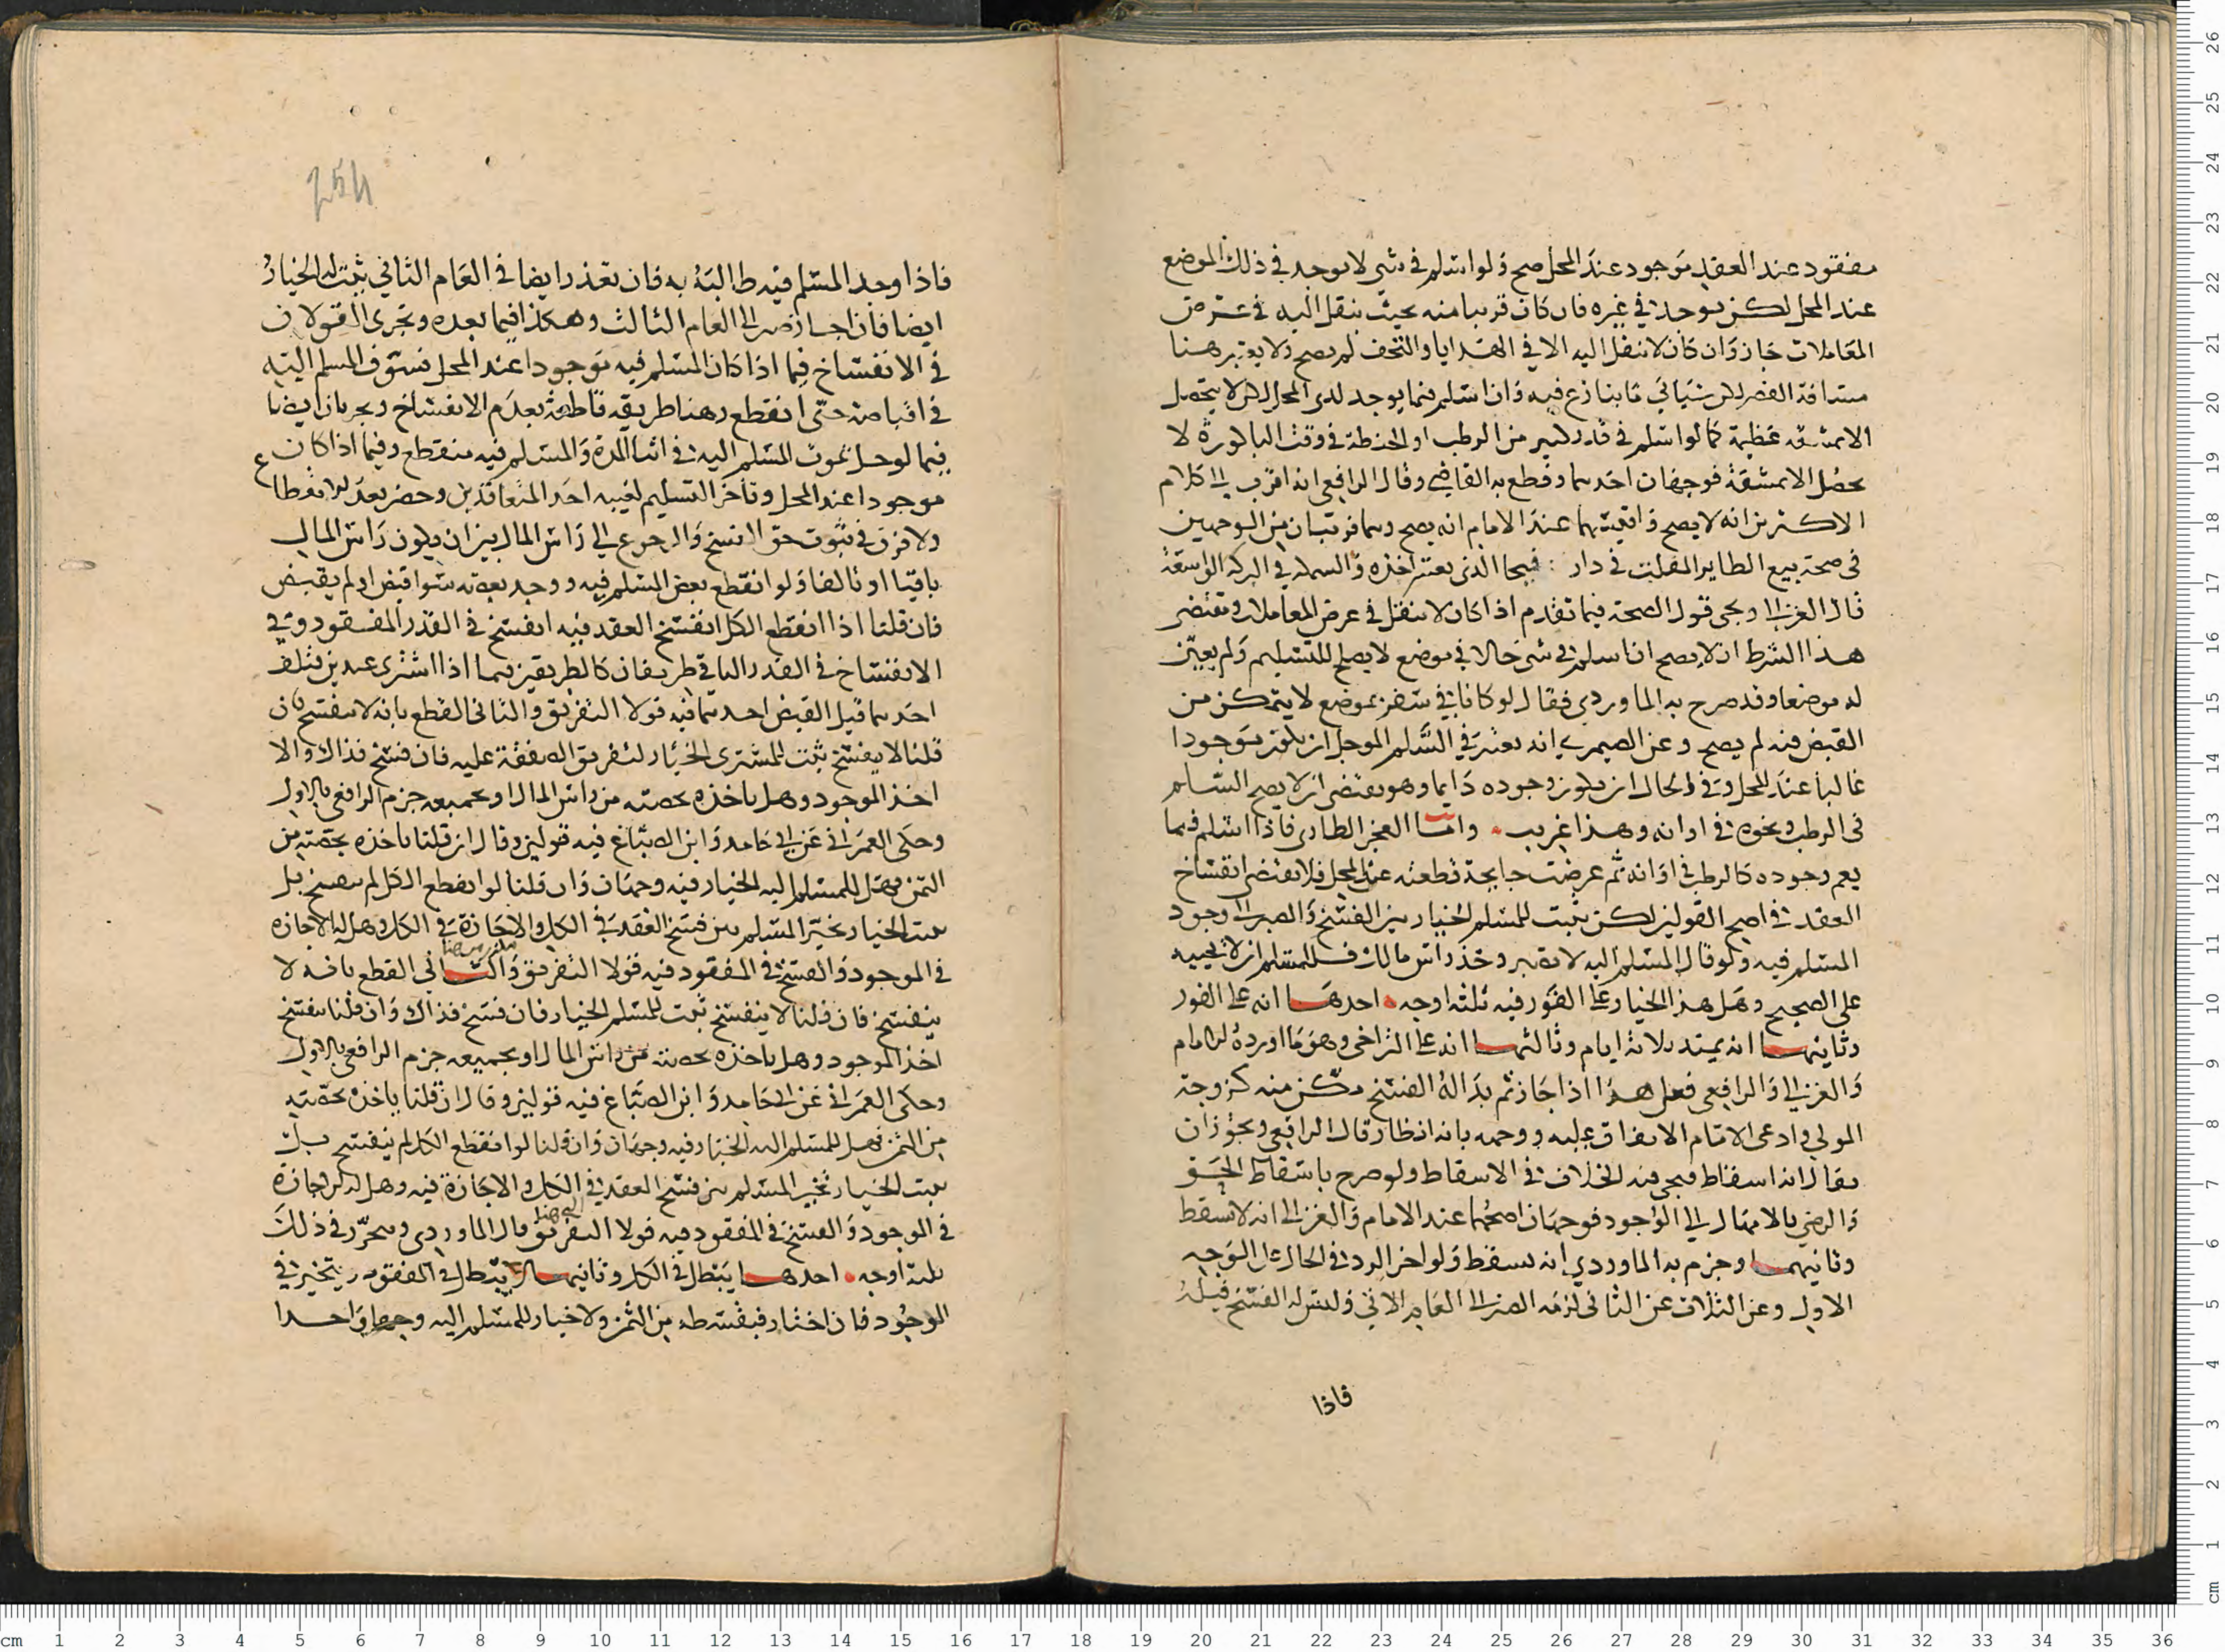 مفقود عند العقد موجود عند المحل صح ولو اسلم في شي لا يوجد في ذلك الموضع
عند المحل لكن يوجد في غيره فان كان قريبا منه بحيث ينقل اليه في غرض
المعاملات جاز وان كان لا ينقل اليه الا في الهدايا والتحف لم يصح ولا يعتبر هنا
مسافة القصر لكن سياتي ما ينازع فيه وان اسلم فيما يوجد لدى المحل لكن لا يتحصل
الا بمشقة عظيمة كما لو اسلم في قدر كبير من الرطب او الحنطة في وقت الباكورة لا
يحصل الا بمشقة فوجهان احدهما وقطع به القاضي وقال الرافعي انه اقرب الى كلام
الاكثرين انه لا يصح واقيسهما عند الامام انه يصح وهما قريبان من الوجهين
في صحة بيع الطاير المفلت في دار فيحا الذي يعسر اخذه والسمك في البركة الواسعة
قال الغزالي ويجي قول الصحة فيما تقدم اذا كان لا ينقل في عرض المعاملات ومقتضى
هذا الشرط ان لا يصح ان اسلم في شي حالا في موضع لا يصلح للتسليم ولم يعين
له موضعا وقد صرح به الماوردي فقال لو كانا في سفر بموضع لا يتمكن من
القبض فيه لم يصح وعن الصيمري انه يعتبر في السلم الموجل ان يكون موجودا
غالبا عند المحل وفي الحال ان يكون وجوده دايما وهو يقتضي ان لا يصح السلم
في الرطب ونحوه في اوانه وهذا غريب واما العجز الطاري فاذا اسلم فيما
يعم وجوده كالرطب في اوانه ثم عرضت جايحة قطعته عند المحل فلا يقتضي انفساخ
العقد في اصح القولين لكن يثبت للمسلم الخيار بين الفسخ والصبر الى وجود
المسلم فيه ولو قال المسلم اليه لا تصبر وخذ راس مالك فللمسلم ان لا يجيبه
على الصحيح وهل هذا الخيار على الفور فيه ثلثه اوجه احدها انه على الفور
وثانيها انه يمتد ثلاثة ايام وثالثها انه على التراخي وهو ما اورده الامام
والغزالي والرافعي فعلى هذا اذا جاز ثم بدا له الفسخ مكن منه كزوجة
المولي وادعى الامام الاتفاق عليه ووجهه بانه انظار قال الرافعي ويجوز ان
يقال انه اسقاط فيجي فيه الخلاف في الاسقاط ولو صرح باسقاط الحق
والرضى بالامهال الى الوجود فوجهان اصحهما عند الامام والغزالي انه لا يسقط
وثانيهما وجزم به الماوردي انه يسقط ولو اخر الرد في الحال على الوجه
الاول وعن الثلاث عن الثاني لزمه الصبر الى العام الاتي وليس له الفسخ قبله
فاذا
فاذا وجد المسلم فيه طالبه به فان تعذر ايضا في العام الثاني يثبت له الخيار
ايضا فان اجاز صبر الى العام الثالث وهكذا فيما بعده وتجري القولان
في الانفساخ فيما اذا كان المسلم فيه موجودا عند المحل فسوف المسلم اليه
في اقباضه حتى انقطع وهنا طريقه قاطعة بعدم الانفساخ ويجريان ايضا
فيما لو حل بموت المسلم اليه في اثنا المدة والمسلم فيه منقطع وفيما اذا كان
موجودا عند المحل وتاخر التسليم لغيبه احد المتعاقدين وحضر بعد الانقطاع
ولا فرق في ثبوت حق الفسخ والرجوع الى راس المال بين ان يكون راس المال
باقيا او تالفا ولو انقطع بعض المسلم فيه ووجد بعضه سوا قبض او لم يقبض
فان قلنا اذا انقطع الكل انفسخ العقد فيه انفسخ في القدر المفقود وفي
الانفساخ في القدر الباقي طريقان كالطريقين فيما اذا اشترى عبدين فتلف
احدهما قبل القبض احدهما فيه قولا التفريق والثاني القطع بانه لا ينفسخ فان
قلنا لا ينفسخ ثبت للمشتري الخيار لتفريق الصفقة عليه فان فسخ فذاك والا
اخذ الموجود وهل ياخذه بحصته من راس المال او بجميعه جزم الرافعي بالاول
وحكى العمراني عن ابي حامد وابن الصباغ فيه قولين وقال ان قلنا ياخذه بحصته من
الثمن فهل للمسلم اليه الخيار فيه وجهان وان قلنا لو انقطع الكل لم ينفسخ بل
يثبت الخيار تخير المسلم بين فسخ العقد في الكل والاجازة في الكل وهل له الاجازه
في الموجود والفسخ في المفقود فيه قولا التفريق والثاني القطع بانه لا
ينفسخ فان قلنا لا ينفسخ ثبت للمسلم الخيار فان فسخ فذاك وان قلنا ينفسخ
اخذ الموجود وهل ياخذه بحصته من راس المال او بجميعه جزم الرافعي بالاول
وحكى العمراني عن ابي حامد وابن الصباغ فيه قولين وقال ان قلنا ياخذه بحصته
من الثمن فهل للمسلم اليه الخيار فيه وجهان وان قلنا لو انقطع الكل لم ينفسخ بل
يثبت الخيار تخير المسلم بين فسخ العقد في الكل والاجازة فيه وهل له الاجازة
الى هنا
في الموجود والفسخ في المفقود فيه قولا التفريق قال الماوردي ويتحرر في ذلك
ثلثة اوجه احدها يبطل في الكل وثانيها لا يبطل في المفقود ويتخير في
الموجود فان اختار فبقسطه من الثمن ولا خيار للمسلم اليه وجها واحدا